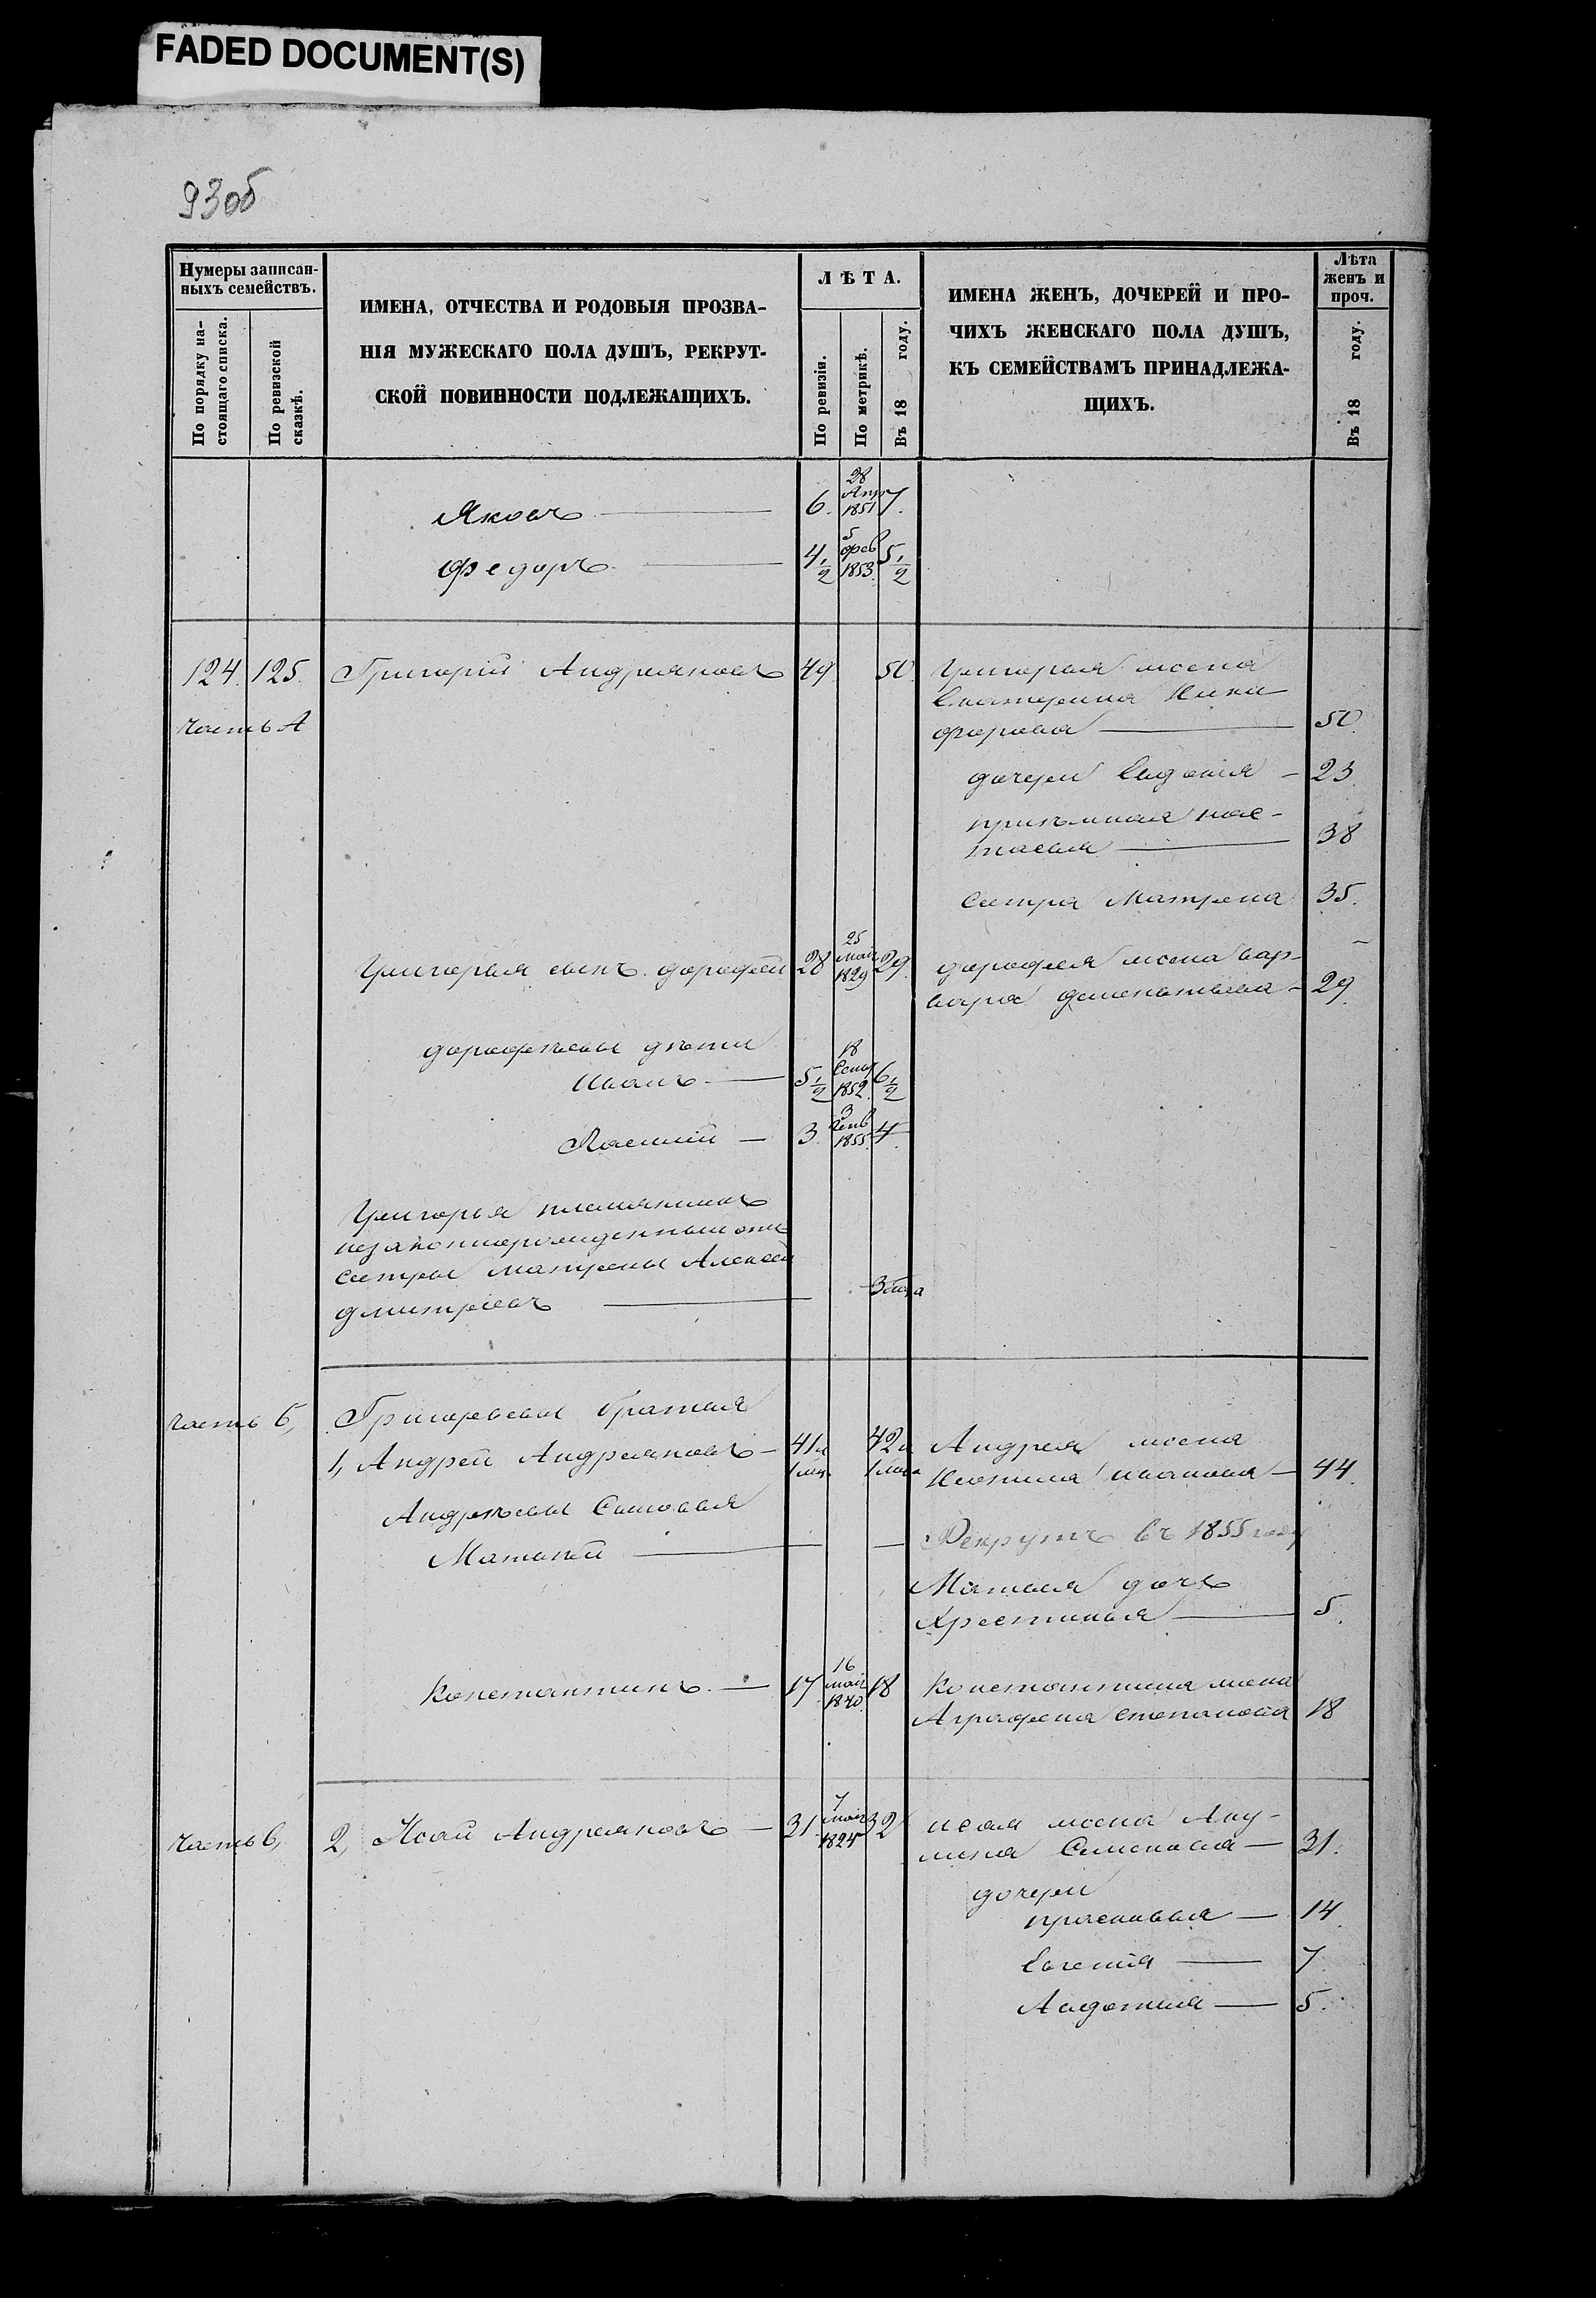 FADED DOCUMENT(S)
93об
Нумеры записан-
ныхъ семействъ.
По порядку на-
стоящаго списка.
По ревизской
сказкѣ.
ИМЕНА, ОТЧЕСТВА И РОДОВЫЯ ПРОЗВА-
НІЯ МУЖЕСКАГО ПОЛА ДУШЪ, РЕКРУТ-
СКОЙ ПОВИННОСТИ ПОДЛЕЖАЩИХЪ.
ЛѢТА.
По ревизіи.
По метрикѣ.
Въ 18 году.
ИМЕНА ЖЕНЪ, ДОЧЕРЕЙ И ПРО-
ЧИХЪ ЖЕНСКАГО ПОЛА ДУШЪ,
КЪ СЕМЕЙСТВАМЪ ПРИНАДЛЕЖА-
ЩИХЪ.
Лѣта
женъ и
проч.
Въ 18 году.
Яковъ 6. 28 Апр 1851 7.
Федоръ 4 1/2 5 фев 1853. 5 1/2
124. 125. Григорій Андреяновъ 49 50. Григорья жена
Екатерина Ники
часть А форова 50.
дочери Евдокія 23
пріемная Нас-
тасья 38
Сестра Матрена 35.
Григорья сынъ дорофей 28 25 май 1829 29. дорофея жена Вар-
вара дементьева 29.
дорофѣевы дѣти
Иванъ 5 1/2 18 Сент 1852. 6 1/2
3 Генв 1855. 3 4
Григорья племянникъ
незаконнорожденный отъ
Сестры Матрены Алексей
дмитріевъ
часть б, Григорьевы братья
1, Андрей Андреяновъ 41 и 42 и Андрея жена
Ивановна 44.
Андрѣевы Сыновья
Матвѣй Рекрутъ въ 1855 году
Матвея дочь
Хрестинья 5.
Константинъ 17 16 май 1840. 18 Константина жена
Аграфена Степанова 18
часть в, 2, Исай Андреяновъ 31. 7 май 32 исая жена Аку-
лина Семенова 31.
дочери
прасковья 14
Евгенія 7
Авдотья 5.